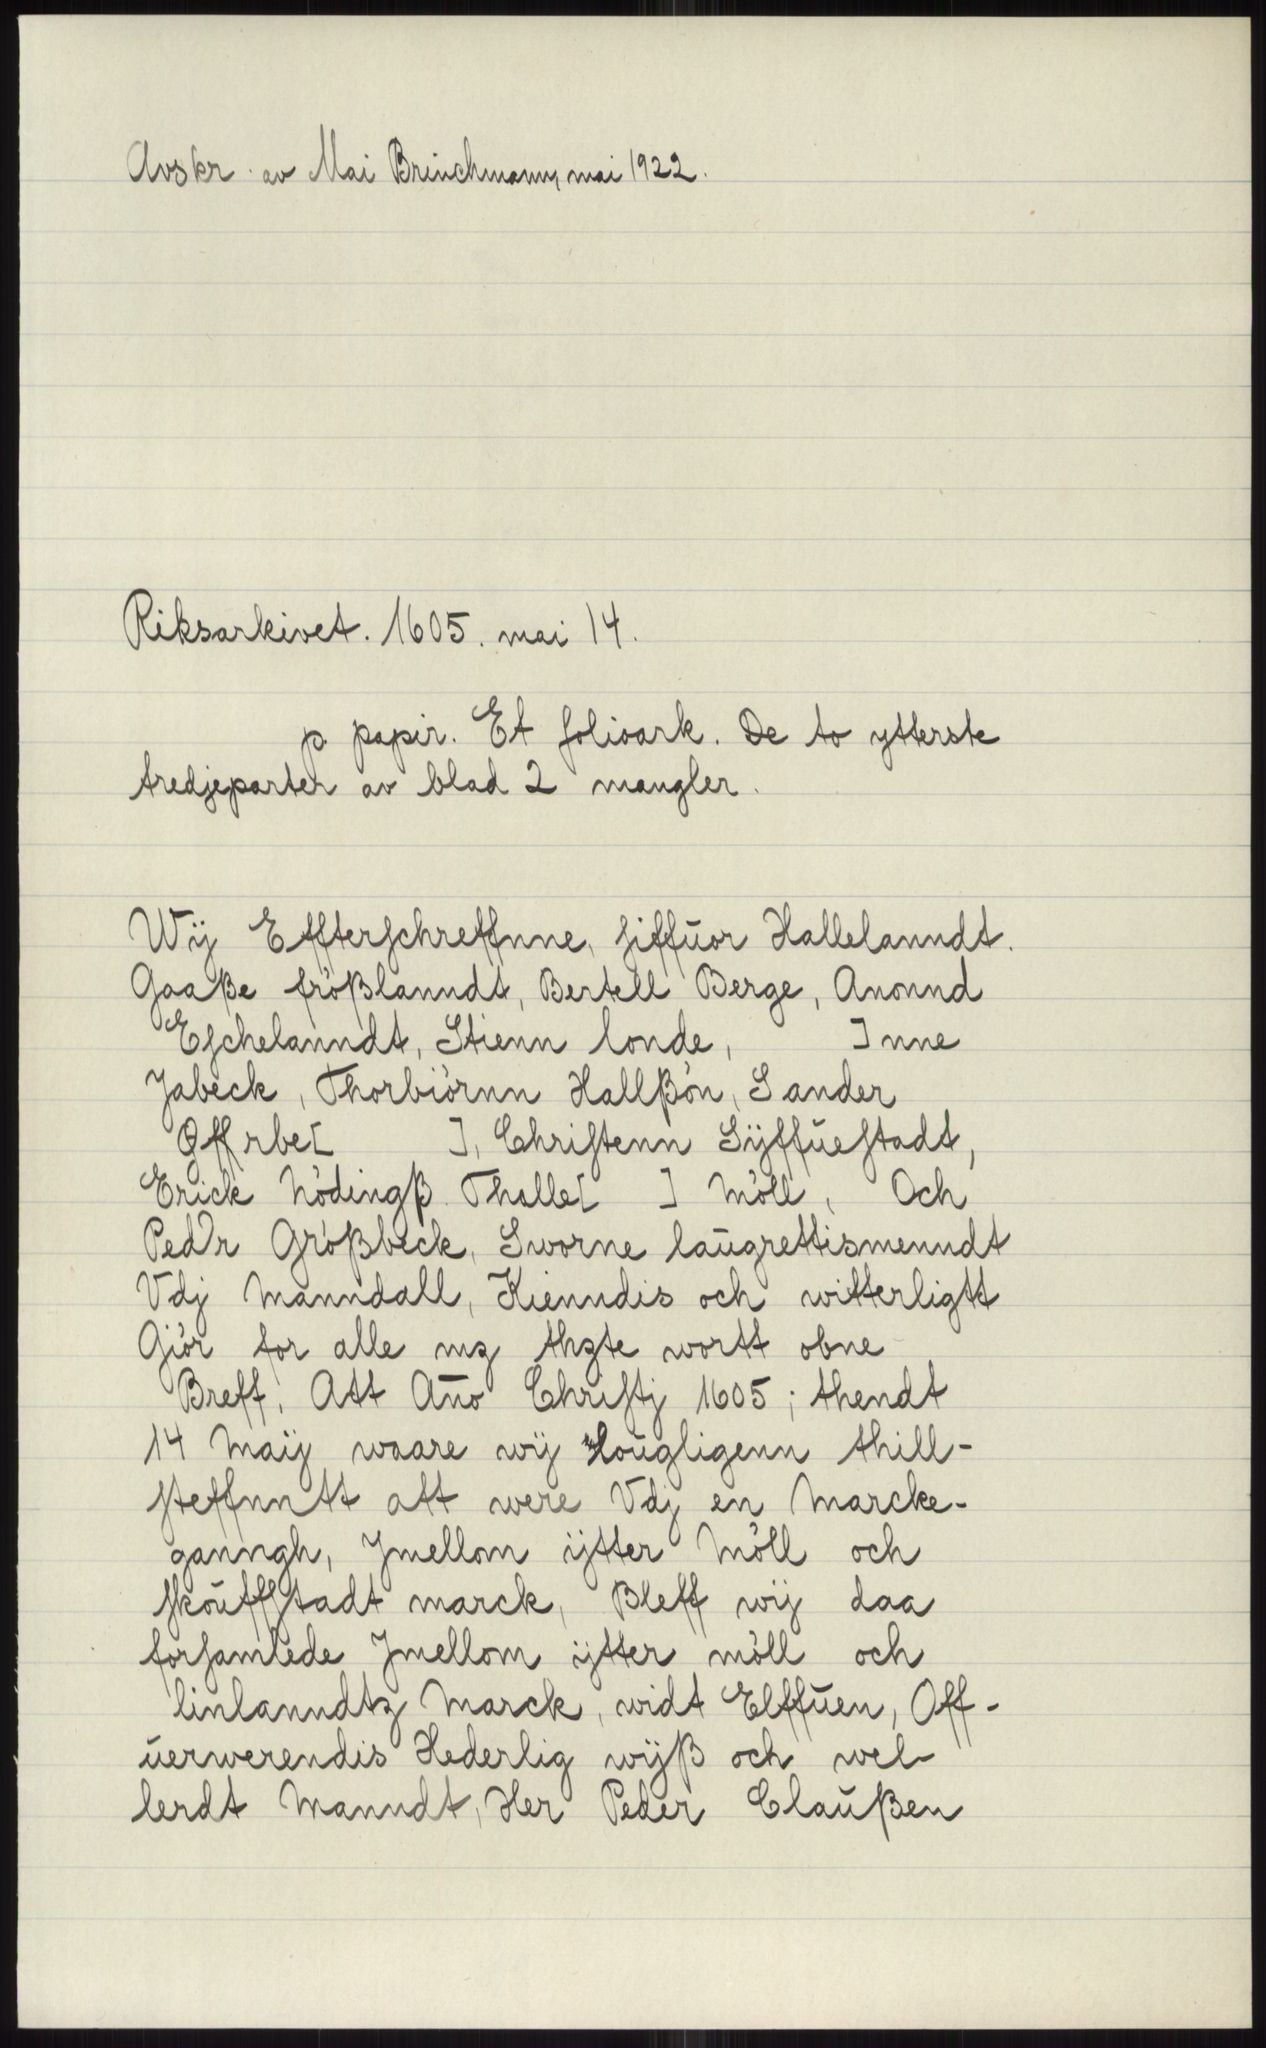 Avskr. av Mai Brinchmann, mai 1922.
Riksarkivet. 1605. mai 14.
p. papir. Et folioark. De to ytterste
tredjeparter av blad 2 mangler.
Wij Effterschreffnne, siffuor Hallelanndt.
Gaaße frößlanndt, Bertell Berge, Anonnd
Eschelanndt, Stienn londe, ]nne
Jabeck, Thorbiörnn Hallßön, Sander
Offrbe[ ], Christenn Sÿffuestadt,
Erick Nödingß. Thalle[ ] Möll, Och
Pedr Großbeck, Sworne laugrettismenndt
Vdj Manndall, Kienndis och witterligtt
Giör for alle mz thzte wortt obne
Breff, Att Año Christj 1605; thendt
14 Maij waare wij Lougligenn thill-
steffnntt att were Vdj en Marcke-
ganngh, Jmellom ÿtter Möll och
skouffstadt marck, Bleff wij daa
forsamlede Jmellom ÿtter möll och
linlanndtz Marck, widt Elffuen, Off-
uerwerendis Hederlig wijß och wel-
lerdt Manndt, Her Peder Claußen